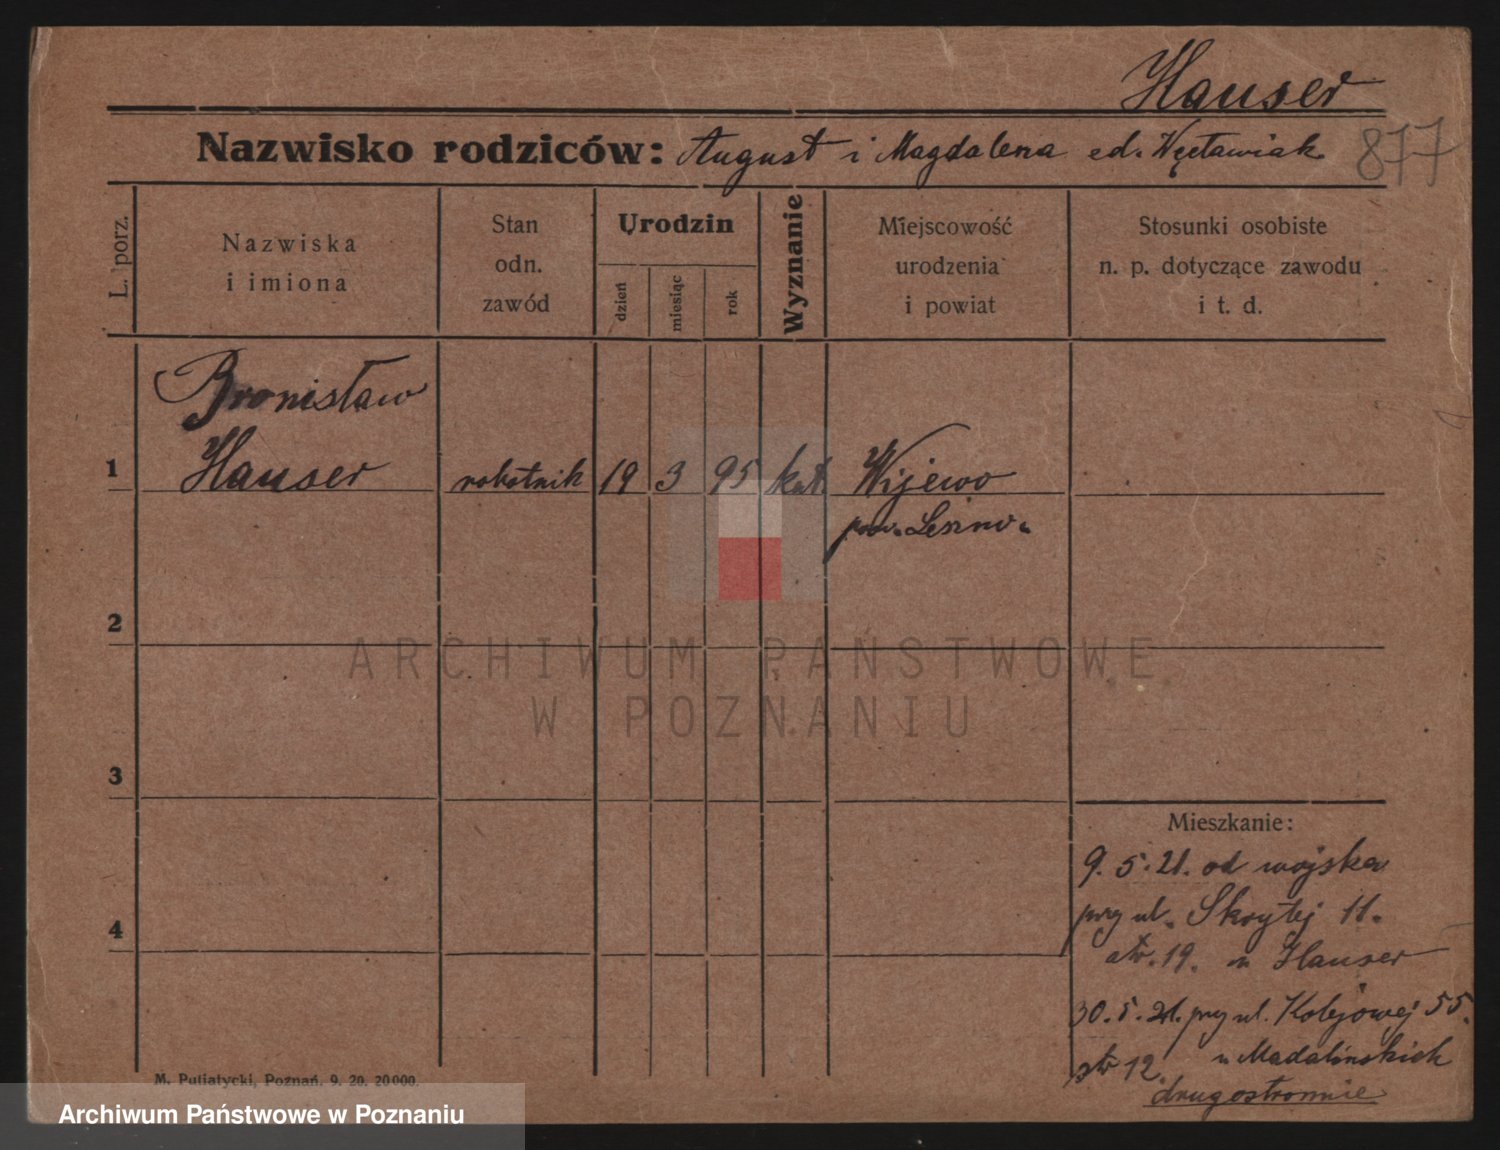 Hauser
Nazwisko rodziców: August i Magdalena ed. Węcławiak
877
L. porz.
Nazwiska
i imiona
Stan
odn.
zawód
Urodzin
dzień
miesiąc
rok
Wyznanie
Miejscowość
urodzenia
i powiat
Stosunki osobiste
n. p. dotyczące zawodu
i t. d.
Bronisław
1 Hauser robotnik 19 3 95 kat. Wijewo
pow. Leszno.
2
ARCHIWUM PAŃSTWOWE
W POZNANIU
3
Mieszkanie:
9. 5. 21. od wojska
przy ul. Skrytej 11.
4
str. 19. u Hauser
30. 5. 21. przy ul. Kolejowej 55.
str 12. u Madalińskich
drugostronnie
M. Putiatycki, Poznań. 9. 20. 20000.
Archiwum Państwowe w Poznaniu